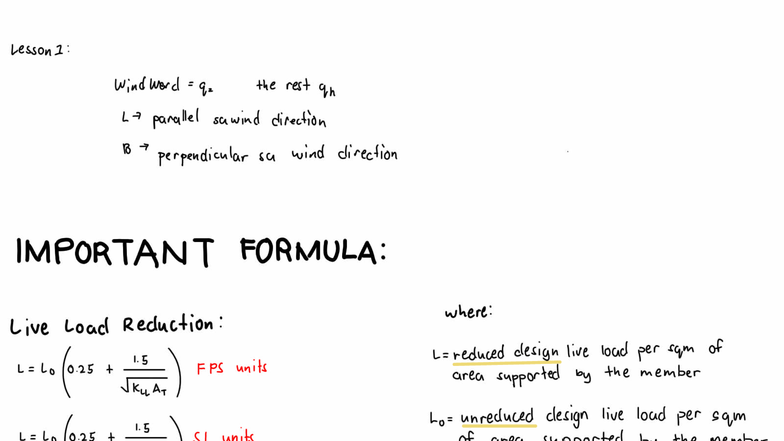 Lesson 1:
Windward = qz the rest qh
L → parallel sa wind direction
B → perpendicular sa wind direction
IMPORTANT FORMULA:
Live Load Reduction:
L = Lo (0.25 + 1.5 / √(KLL AT)) FPS units
L = Lo (0.25 + 1.5 SI units
where:
L = reduced design live load per sqm of
area supported by the member
Lo = unreduced design live load per sqm
of area supported by the member